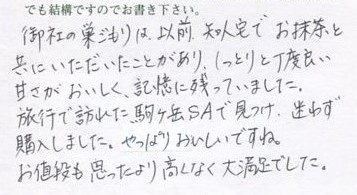 でも結構ですのでお書き下さい。
御社の巣ごもりは、以前、知人宅でお抹茶と
共にいただいたことがあり、しっとりと丁度良い
甘さがおいしく、記憶に残っていました。
旅行で訪れた駒ヶ岳SAで見つけ、迷わず
購入しました。やっぱりおいしいですね。
お値段も思ったより高くなく大満足でした。